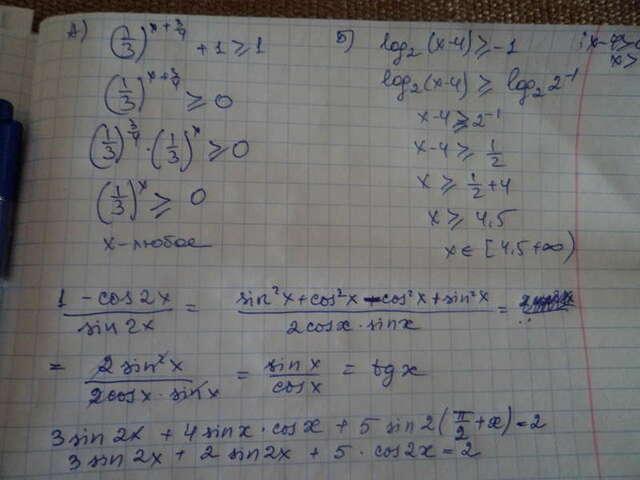 А) (1/3)^(x+3/4) + 1 ≥ 1
(1/3)^(x+3/4) ≥ 0
(1/3)^(3/4) · (1/3)^x ≥ 0
(1/3)^x ≥ 0
x - любое
Б) log₂(x-4) ≥ -1
log₂(x-4) ≥ log₂2⁻¹
x-4 ≥ 2⁻¹
x-4 ≥ 1/2
x ≥ 1/2 + 4
x ≥ 4,5
x ∈ [4,5 +∞)
x >
(1 - cos2x)/(sin2x) = (sin²x + cos²x - cos²x + sin²x)/(2cosx · sinx) =
= (2sin²x)/(2cosx · sinx) = (sin x)/(cosx) = tgx
3sin2x + 4sinx · cosx + 5 sin2(π/2 + x) = 2
3sin2x + 2sin2x + 5 · cos2x = 2